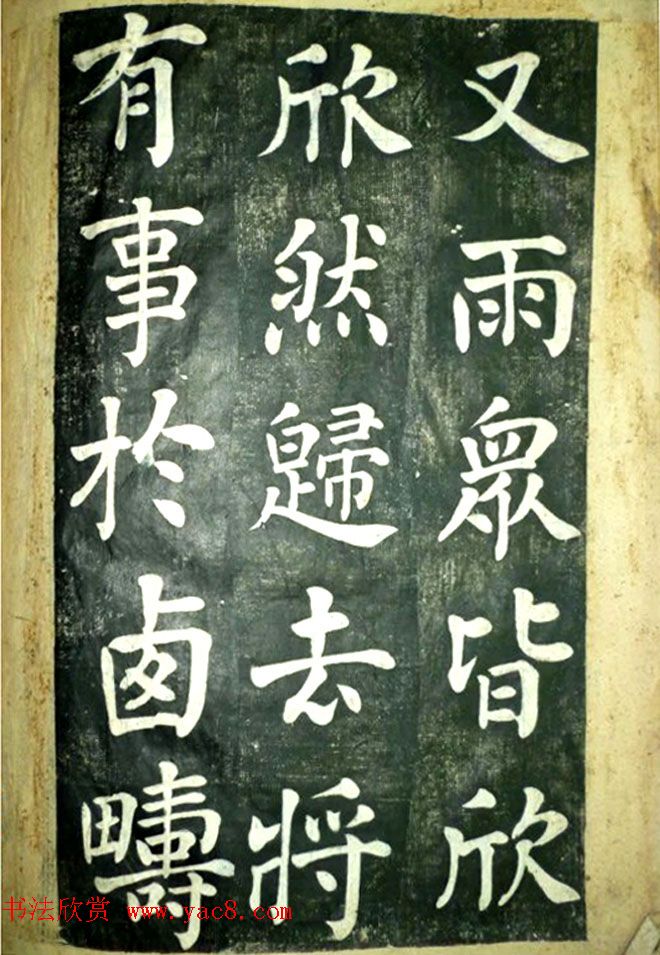 又雨眾皆欣
欣然歸去將
有事於卥疇
书法欣赏 www.yac8.com